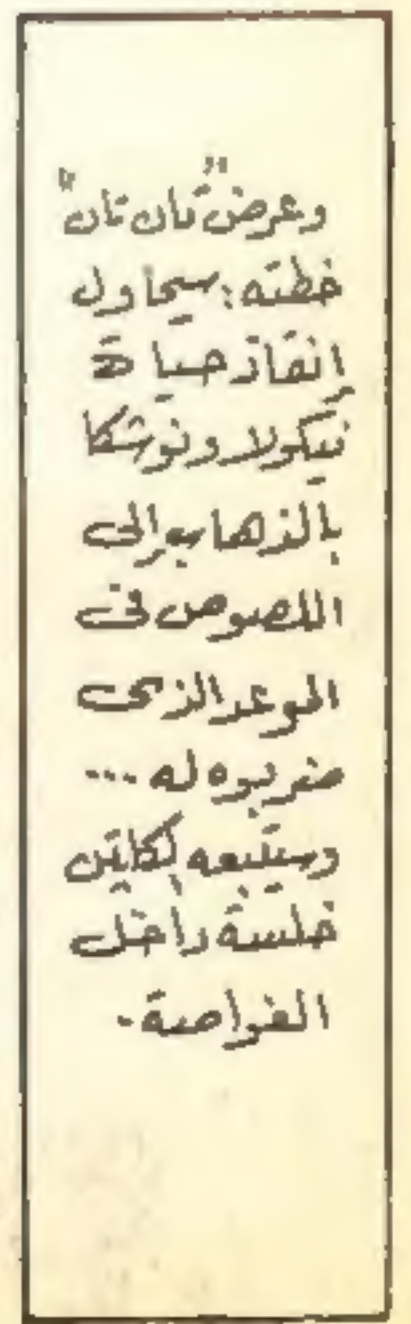 وعرض "تان تان"
خطته: سيحاول
إنقاذ حياة
نيكولا ونوشكا
بالذهاب إلى
اللصوص فى
الموعد الذى
ضربوه له ...
وسيتبعه الكابتن
خلسة داخل
الغواصة.